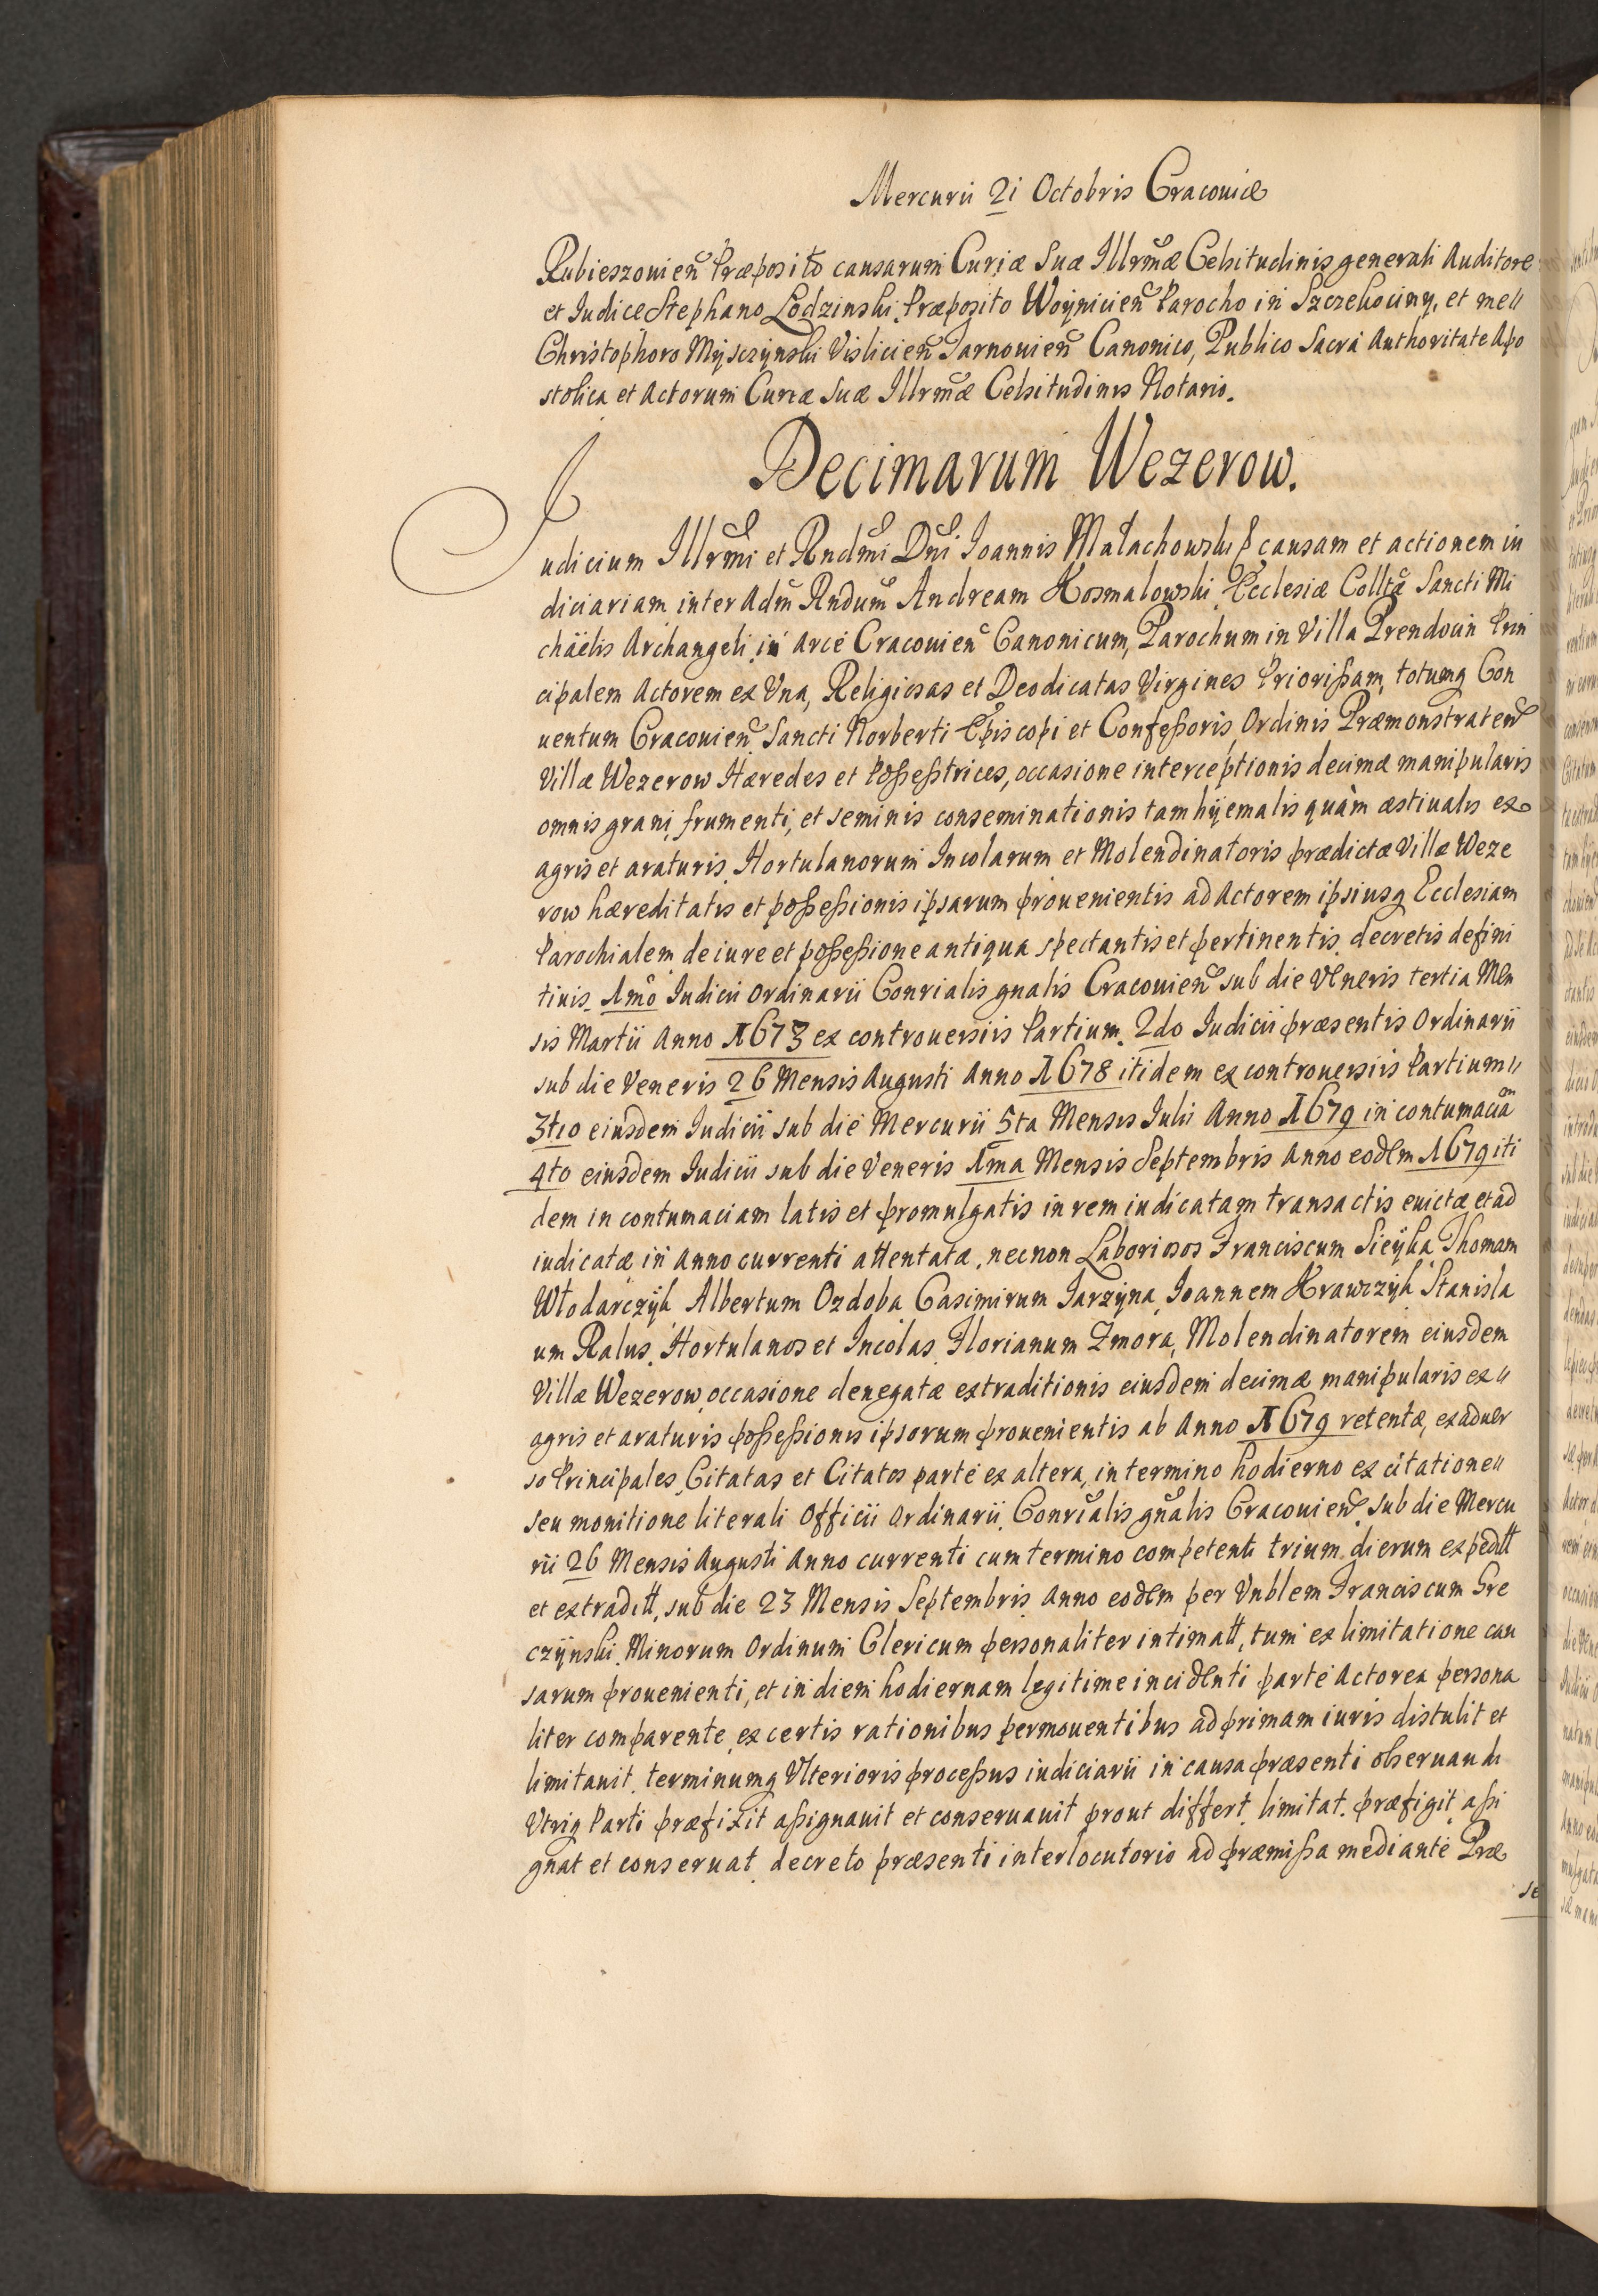 Mercurii 21 Octobris Cracouiæ
Rubieszouien Præposito causarum Curiæ Suæ Illrmæ Celsitudinis generali Auditore
et Iudice Stephano Lodzinski Præposito Woynicien Parocho in Szczekociny, et me
Christophoro Myszczynski Vislicien Tarnouien Canonico, Publico Sacra Authoritate Apo
stolica et Actorum Curiæ Suæ Illrmæ Celsitudinis Notario.
Decimarum Wezerow.
Iudicium Illrmi et Rndmi Dni Ioannis Małachowski causam et actionem iu
diciariam inter Adm Rndum Andream Kosmalowski Ecclesiæ Colltæ Sancti Mi
chäelis Archangeli in Arce Cracouien Canonicum, Parochum in Villa Prendocin Prin
cipalem Actorem ex Vna, Religiosas et Deodicatas Virgines Priorißam, totumq Con
uentum Cracouien Sancti Norberti Episcopi et Confeßoris Ordinis Præmonstraten
Villæ Wezerow Hæredes et Poßeßtrices, occasione interceptionis decimæ manipularis
omnis grani frumenti, et seminis conseminationis tam hyemalis quàm æstiualis ex
agris et araturis Hortulanorum Incolarum et Molendinatoris prædictæ Villæ Weze
row hæreditatis et poßeßionis ipsarum prouenientis ad Actorem ipsiusq Ecclesiam
Parochialem de iure et poßeßione antiqua spectantis et pertinentis decretis defini
tiuis 1mo Iudicii Ordinarii Consrialis gnalis Cracouien sub die Veneris tertia Men
sis Martii Anno 1673 ex controuersiis Partium. 2do Iudicii præsentis Ordinarii
sub die Veneris 26 Mensis Augusti Anno 1678 itidem ex controuersiis Partium
3tio eiusdem Iudicii sub die Mercurii 5ta Mensis Iulii Anno 1679 in contumaciam
4to eiusdem Iudicii sub die Veneris 1ma Mensis Septembris Anno eodem 1679 iti
dem in contumaciam latis et promulgatis in rem iudicatam transactis euictæ et ad
iudicatæ in Anno currenti attentatæ, necnon Laboriosos Franciscum Sieyka Thomam
Włodarczyk Albertum Ozdoba Casimirum Jarzyna Ioannem Krawczyk Stanisla
um Ralus Hortulanos et Incolas Florianum Zmora, Molendinatorem eiusdem
Villæ Wezerow occasione denegatæ extraditionis eiusdem decimæ manipularis ex
agris et araturis poßeßionis ipsorum prouenientis ab Anno 1679 retentæ, ex aduer
so Principales Citatas et Citatos parte ex altera, in termino hodierno ex citatione
seu monitione literali Officii Ordinarii Consrialis gnalis Cracouien sub die Mercu
rii 26 Mensis Augusti Anno currenti cum termino competenti trium dierum expedtt
et extraditt, sub die 23 Mensis Septembris Anno eodem per Vnblem Franciscum Gre
czynski Minorum Ordinum Clericum personaliter intimatt, tum ex limitatione cau
sarum prouenienti, et in diem hodiernam legitime incidenti parte Actorea persona
liter comparente, ex certis rationibus permouentibus ad primam iuris distulit et
limitauit terminumq Vlterioris proceßus iudiciarii in causa præsenti obseruandi
Vtriq Parti præfixit aßignauit et conseruauit prout differt limitat præfigit aßi
gnat et conseruat decreto præsenti interlocutorio ad præmißa mediante Præ
se